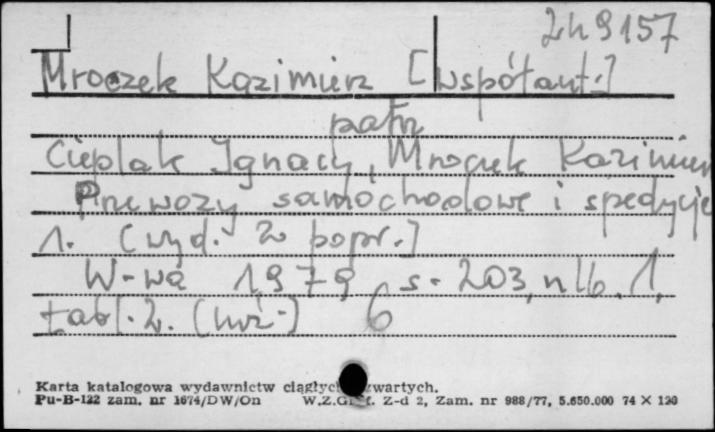 2h9157
Mroczek Kazimierz [współaut.]
patrz
Cieplak Ignacy, Mroczek Kazimierz
Przewozy samochodowe i spedycje
1. (wyd. 2 popr.)
W-wa 1979 s. 203, nlb. 1,
tabl. 2. 6
Karta katalogowa wydawnictw ciągłych zwartych.
Pu-B-122 zam. nr 1674/DW/On W.Z.Graf. Z-d 2, Zam. nr 988/77, 5.650.000 74 X 120